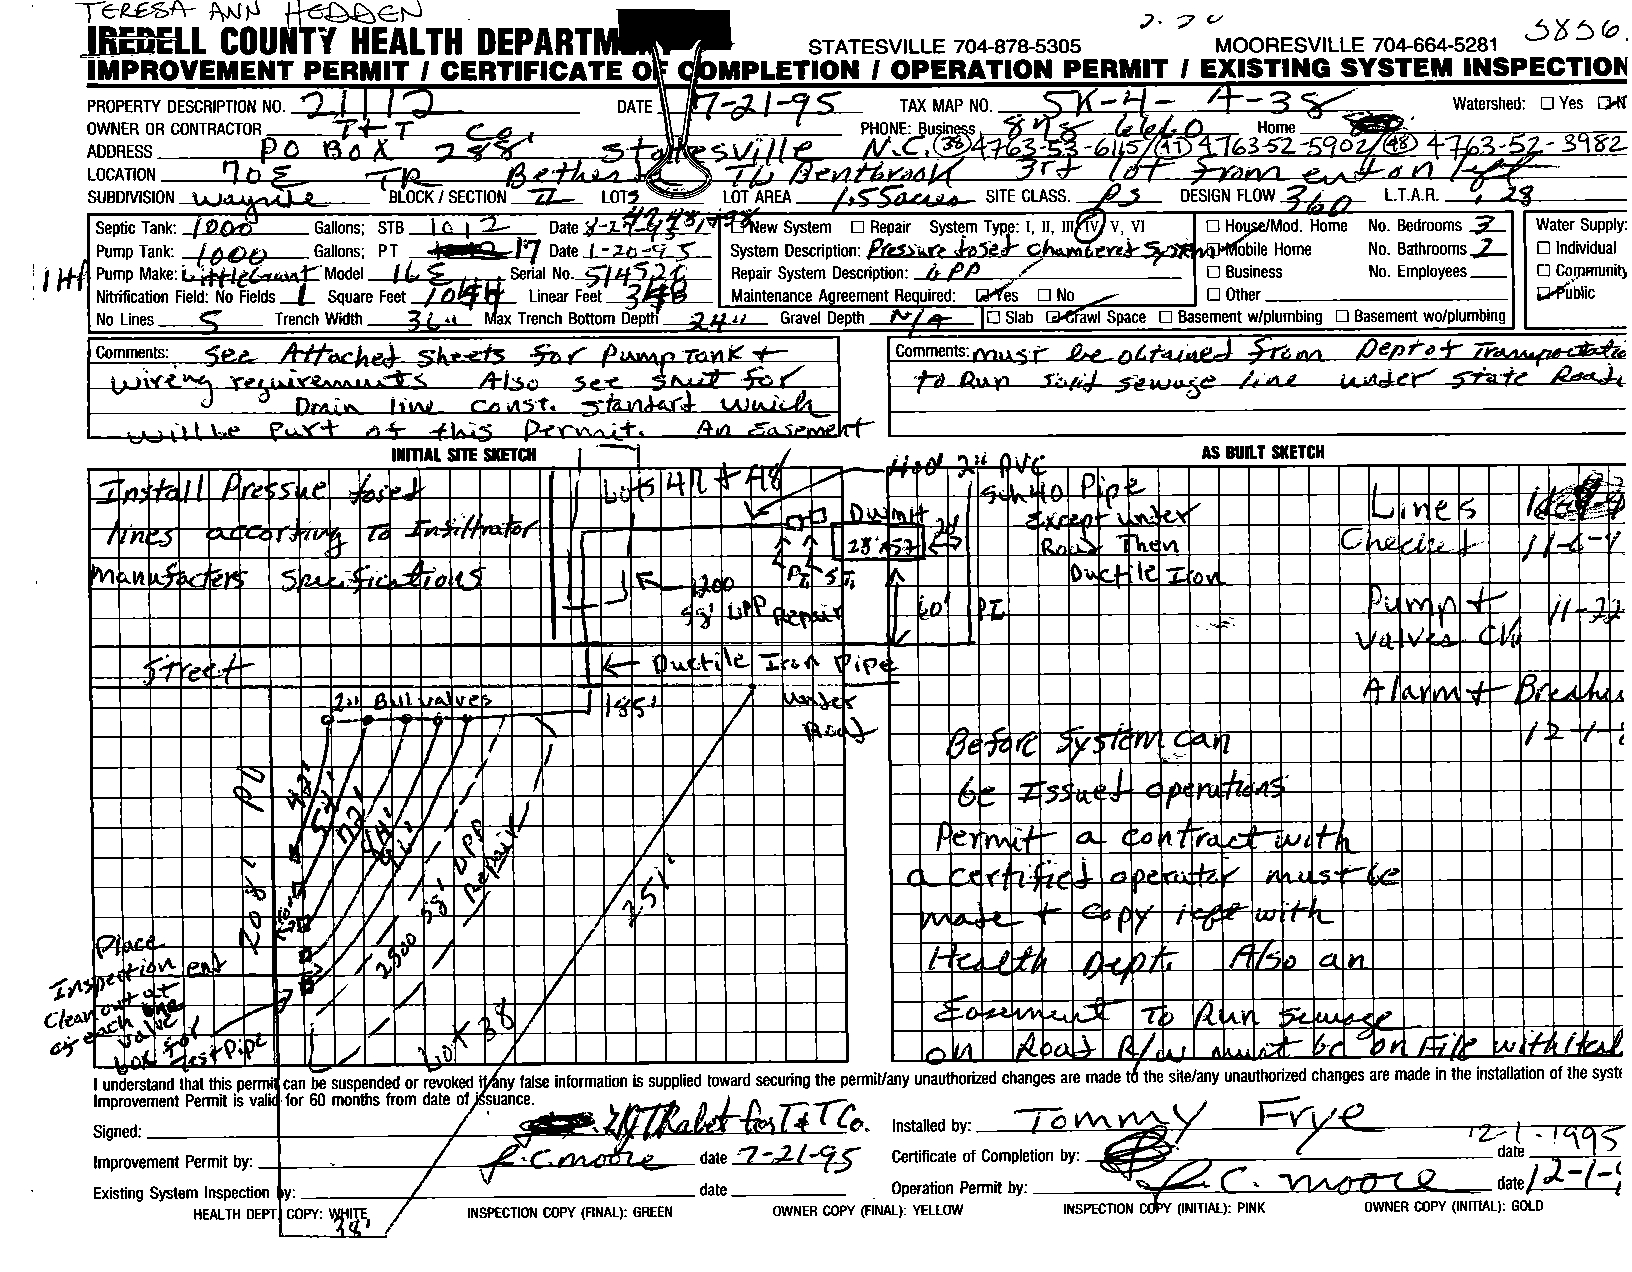 TERESA ANN HEDDEN
IREDELL COUNTY HEALTH DEPARTM STATESVILLE 704-878-5305 MOORESVILLE 704-664-5281
IMPROVEMENT PERMIT / CERTIFICATE OF COMPLETION / OPERATION PERMIT / EXISTING SYSTEM INSPECTION
PROPERTY DESCRIPTION NO. 21112 DATE 7-21-95 TAX MAP NO. 5K-4-A-38 Watershed: Yes
OWNER OR CONTRACTOR T+T Co. PHONE: Business 878 6660 Home
ADDRESS PO BOX 288 Statesville N.C. (38) 4763-53-6115/(47) 4763-52-5902/(48) 4763-52-3982
LOCATION 70E TR Bethesda TL Bentbrook 3rd lot from end on left
SUBDIVISION Wayside BLOCK / SECTION II LOTS LOT AREA 1.55 acres SITE CLASS. PS DESIGN FLOW 360 L.T.A.R. .28
Septic Tank: 1000 Gallons; STB 1012 Date New System Repair System Type: I, II, III, IV, V, VI House/Mod. Home No. Bedrooms 3 Water Supply:
Pump Tank: 1000 Gallons; PT 17 Date 1-20-95 System Description: Pressure dosed Chambered System Mobile Home No. Bathrooms 2 Individual
1 Hf Pump Make: Little Giant Model 16E Serial No. Repair System Description: LPP Business No. Employees Community
Nitrification Field: No Fields 1 Square Feet 1044 Linear Feet 348 Maintenance Agreement Required: Yes No Other Public
No Lines 5 Trench Width 36" Max Trench Bottom Depth 24" Gravel Depth N/A Slab Crawl Space Basement w/plumbing Basement wo/plumbing
Comments: See Attached sheets for Pump Tank +
wiring requirements Also see sheet for
Drain line const. standard which
will be Part of this Permit. An Easement
Comments: must be obtained from Dept of Transportatio
to Run solid sewage line under State Road
INITIAL SITE SKETCH
AS BUILT SKETCH
Install Pressue dosed
lines according To Infiltrator
manufacters Specifications
Lots 47 + 48
2" PVC
Sch 40 Pipe
Except under
Road Then
Ductile Iron
DWMH
28'x52'
PT ST
58' LPP Repair
60'
PL
Street
Ductile Iron Pipe
under
Road
2" Ball valves
185'
208' PL
42'
52'
72'
96'
58' LPP
Repair
251'
Lot 38
Place
Inspection and
Clean out at
end of each line
valve
box for
Test Pipe
38'
Lines
Checked 11-6-9
Pump +
Valves Ck 11-22
Alarm + Breaker
12-1-
Before System can
be Issued operations
Permit a contract with
a certified operator must be
made + copy left with
Health Dept. Also an
Easement To Run Sewage
on Road R/W must be on File with
I understand that this permit can be suspended or revoked if any false information is supplied toward securing the permit/any unauthorized changes are made to the site/any unauthorized changes are made in the installation of the syste
Improvement Permit is valid for 60 months from date of issuance.
Signed: for T&T Co. Installed by: Tommy Frye
Improvement Permit by: R.C. Moore date 7-21-95 Certificate of Completion by: date 12-1-1995
Existing System Inspection by: date Operation Permit by: R.C. Moore date 12-1-
HEALTH DEPT. COPY: WHITE INSPECTION COPY (FINAL): GREEN OWNER COPY (FINAL): YELLOW INSPECTION COPY (INITIAL): PINK OWNER COPY (INITIAL): GOLD